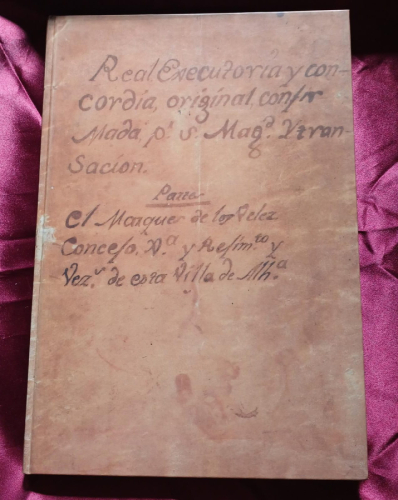 Real Executoria y con-
cordia, original, confir
Mada p.r s. Mag.d Y tran-
Sacion.
Partes
el Marques de los Velez
Concejo, y Resim.to y
Vez.s de esta Villa de